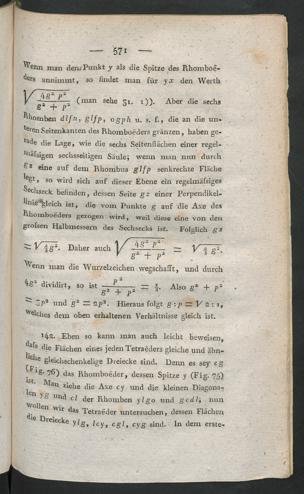 — 571 —
Wenn man den Punkt y als die Spitze des Rhomboë-
ders annimmt, so findet man für yx den Werth
√(4g² p² / g² + p²) (man sehe 31. 1)). Aber die sechs
Rhomben dlfn, glfp, ogph u. s. f., die an die un-
teren Seitenkanten des Rhomboëders gränzen, haben ge-
rade die Lage, wie die sechs Seitenflächen einer regel-
mäſsigen sechsseitigen Säule; wenn man nun durch
gz eine auf dem Rhombus glfp senkrechte Fläche
legt, so wird sich auf dieser Ebene ein regelmäſsiges
Sechseck befinden, dessen Seite gz einer Perpendikel-
linie gleich ist, die vom Punkte g auf die Axe des
Rhomboëders gezogen wird, weil diese eine von den
groſsen Halbmessern des Sechsecks ist. Folglich gz
= √(4/3 g²). Daher auch √(4g² p² / g² + p²) = √(4/3 g²).
Wenn man die Wurzelzeichen wegschafft, und durch
4g² dividirt, so ist p² / g² + p² = 1/3. Also g² + p²
= 3p² und g² = 2p². Hieraus folgt g : p = √2 : 1,
welches dem oben erhaltenen Verhältnisse gleich ist.
142. Eben so kann man auch leicht beweisen,
daſs die Flächen eines jeden Tetraëders gleiche und ähn-
liche gleichschenkelige Dreiecke sind. Denn es sey cg
(Fig. 76) das Rhomboëder, dessen Spitze y (Fig. 75)
ist. Man ziehe die Axe cy und die kleinen Diagona-
len yg und cl der Rhomben ylgo und gcdl; nun
wollen wir das Tetraëder untersuchen, dessen Flächen
die Dreiecke ylg, lcy, cgl, cyg sind. In dem erste-